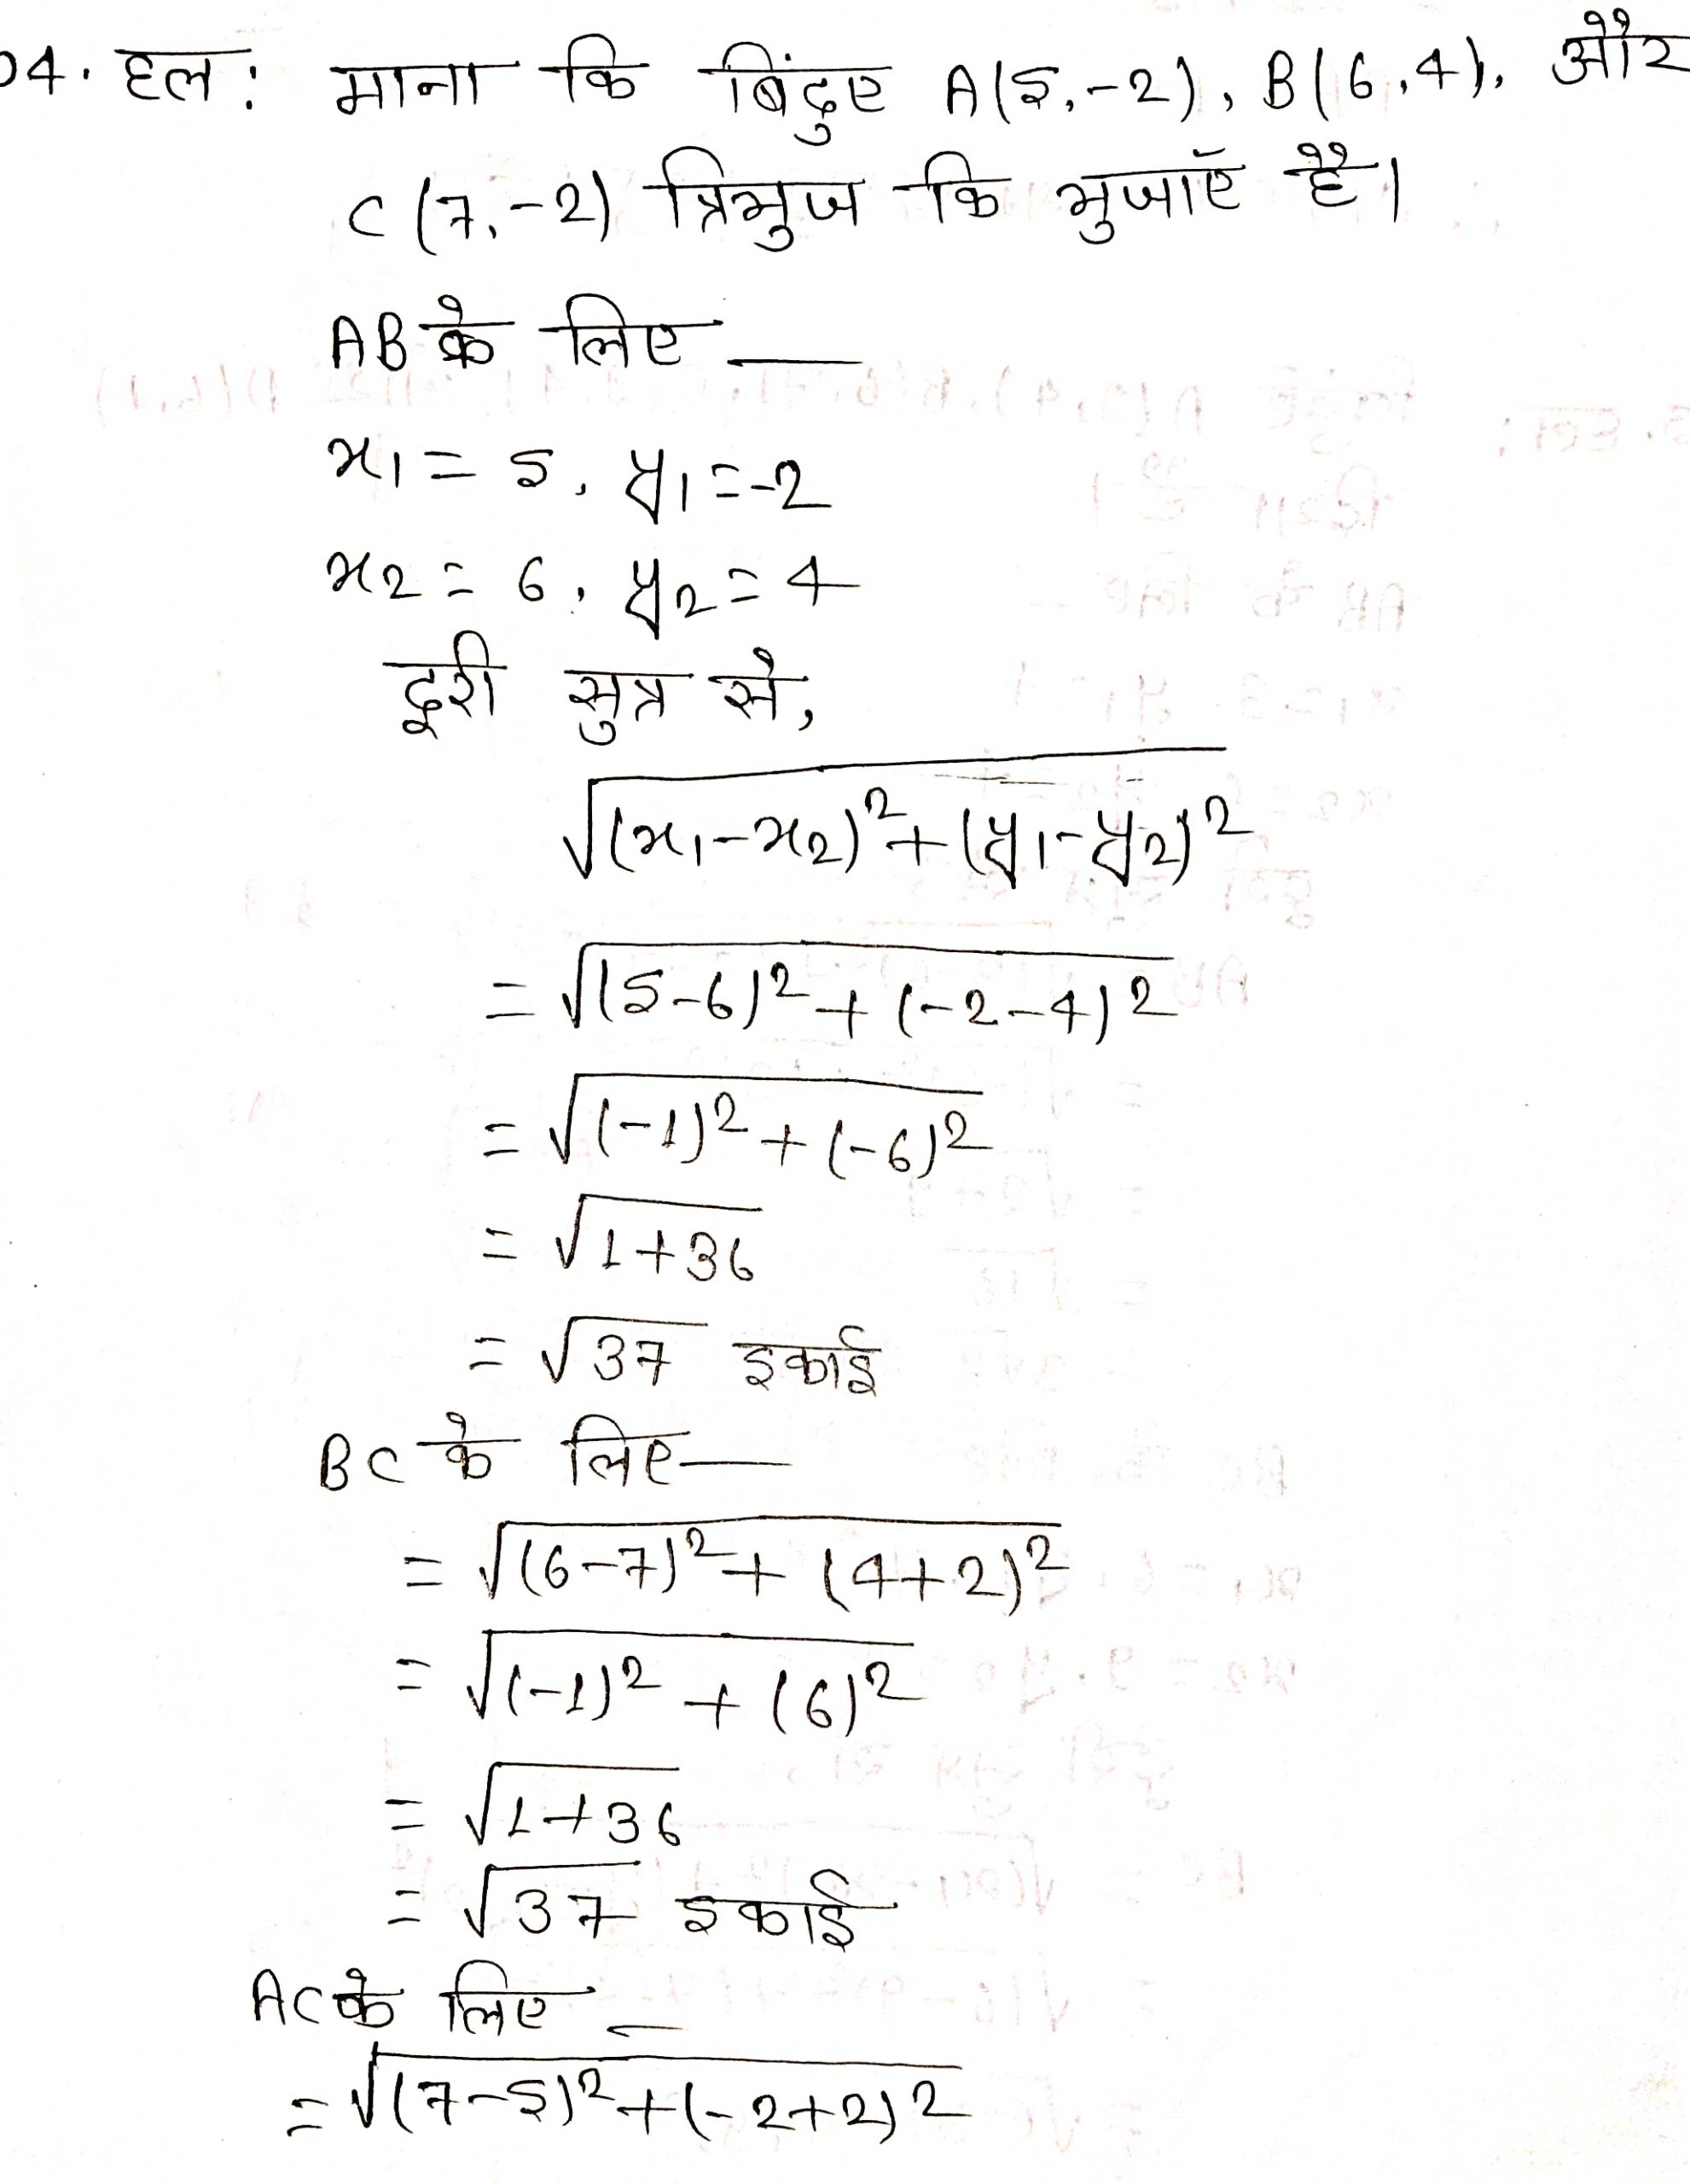 04. हल: माना कि बिंदुए A(5,-2), B(6,4), और
C(7,-2) त्रिभुज कि भुजाएँ है।
AB के लिए —
x1 = 5, y1 = -2
x2 = 6, y2 = 4
दूरी सुत्र से,
√(x1-x2)²+(y1-y2)²
= √(5-6)²+(-2-4)²
= √(-1)²+(-6)²
= √1+36
= √37 इकाई
BC के लिए —
= √(6-7)²+(4+2)²
= √(-1)²+(6)²
= √1+36
= √37 इकाई
AC के लिए —
= √(7-5)²+(-2+2)²